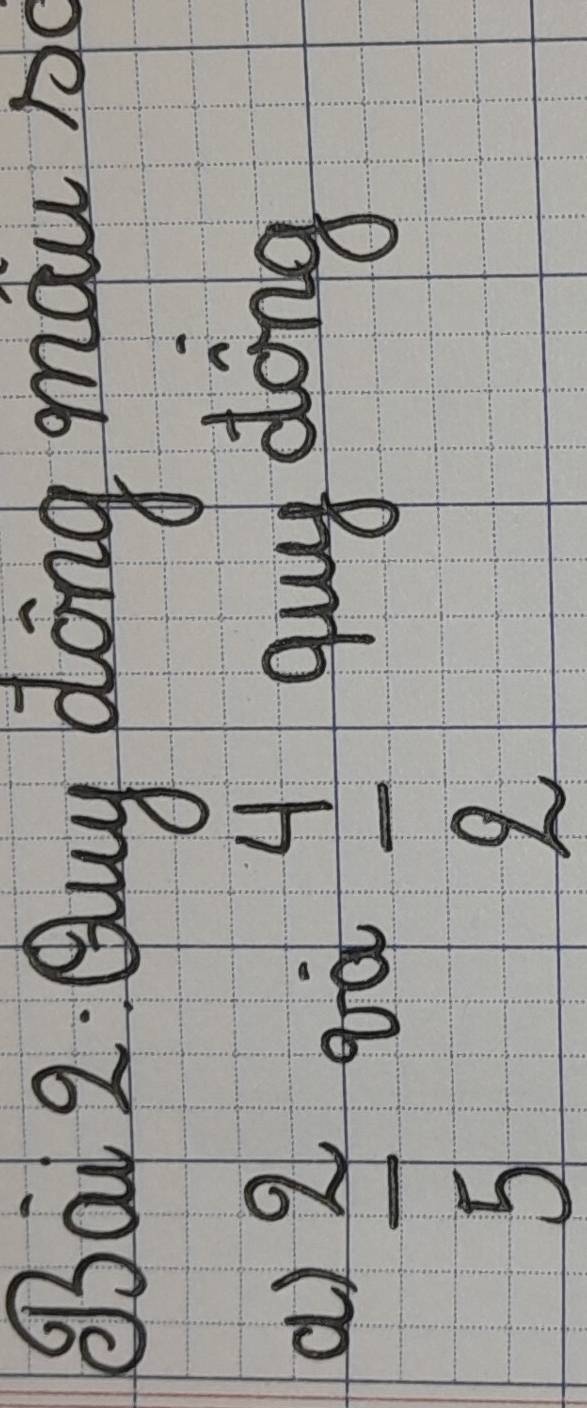 Bài 2: Quy đồng mẫu số
a) 2 và 4 quy đồng
5 2